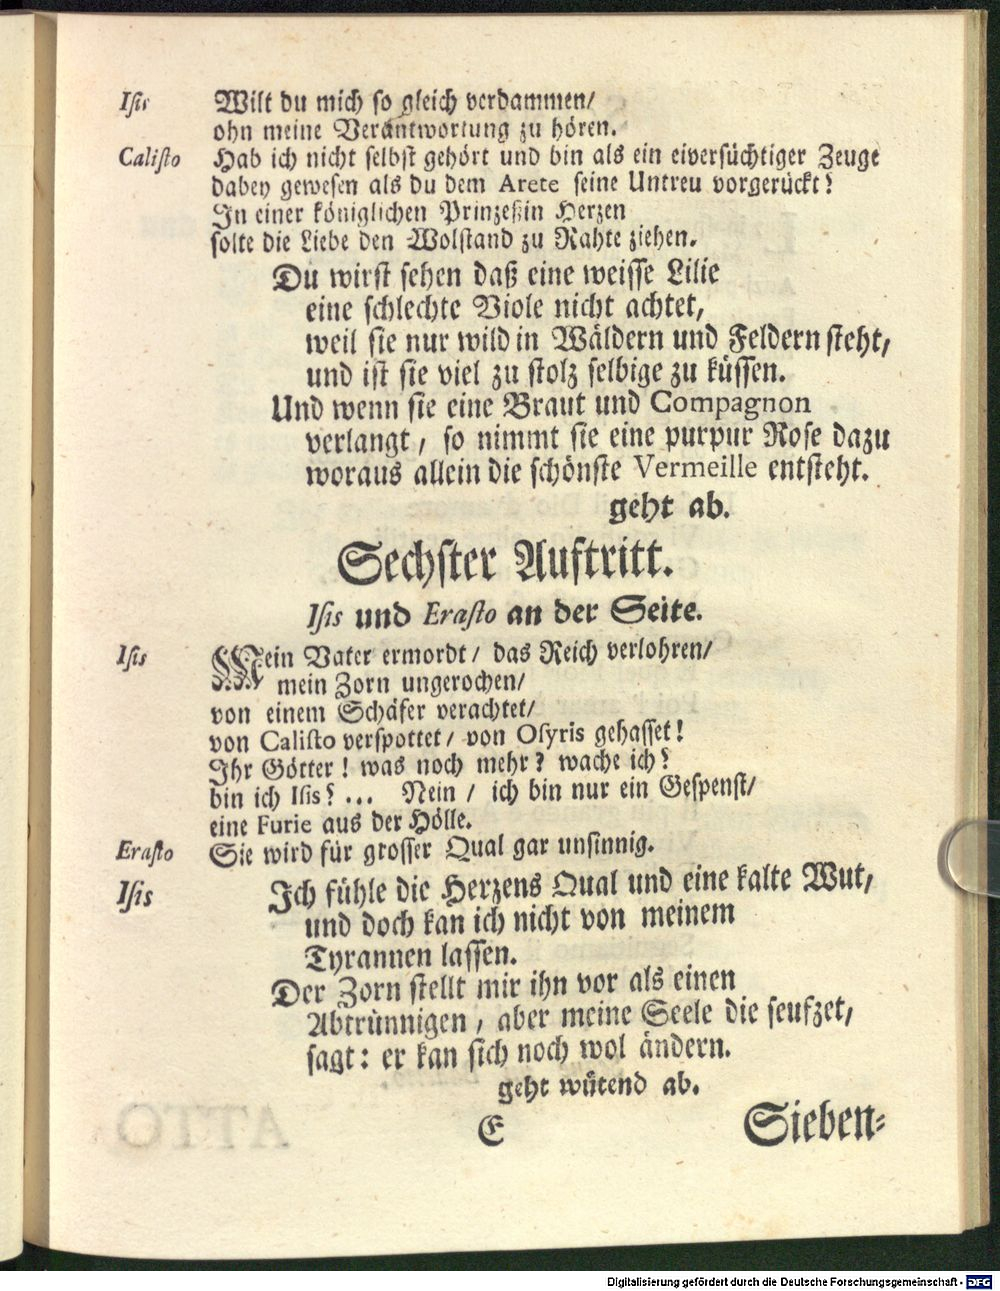 Isis Wilt du mich so gleich verdammen/
ohn meine Verantwortung zu hören.
Calisto Hab ich nicht selbst gehört und bin als ein eiversüchtiger Zeuge
dabey gewesen als du dem Arete seine Untreu vorgerückt?
In einer königlichen Prinzeßin Herzen
solte die Liebe den Wolstand zu Rahte ziehen.
Du wirst sehen daß eine weisse Lilie
eine schlechte Viole nicht achtet,
weil sie nur wild in Wäldern und Feldern steht,
und ist sie viel zu stolz selbige zu küssen.
Und wenn sie eine Braut und Compagnon
verlangt, so nimmt sie eine purpur Rose dazu
woraus allein die schönste Vermeille entsteht.
geht ab.
Sechster Auftritt.
Isis und Erasto an der Seite.
Isis Mein Vater ermordt/ das Reich verlohren/
mein Zorn ungerochen/
von einem Schäfer verachtet/
von Calisto verspottet/ von Osyris gehasset!
Ihr Götter! was noch mehr? wache ich?
bin ich Isis? ... Nein/ ich bin nur ein Gespenst/
eine Furie aus der Hölle.
Erasto Sie wird für grosser Qual gar unsinnig.
Isis Ich fühle die Herzens Qual und eine kalte Wut,
und doch kan ich nicht von meinem
Tyrannen lassen.
Der Zorn stellt mir ihn vor als einen
Abtrünnigen, aber meine Seele die seufzet,
sagt: er kan sich noch wol ändern.
geht wütend ab.
E Sieben-
Digitalisierung gefördert durch die Deutsche Forschungsgemeinschaft - DFG